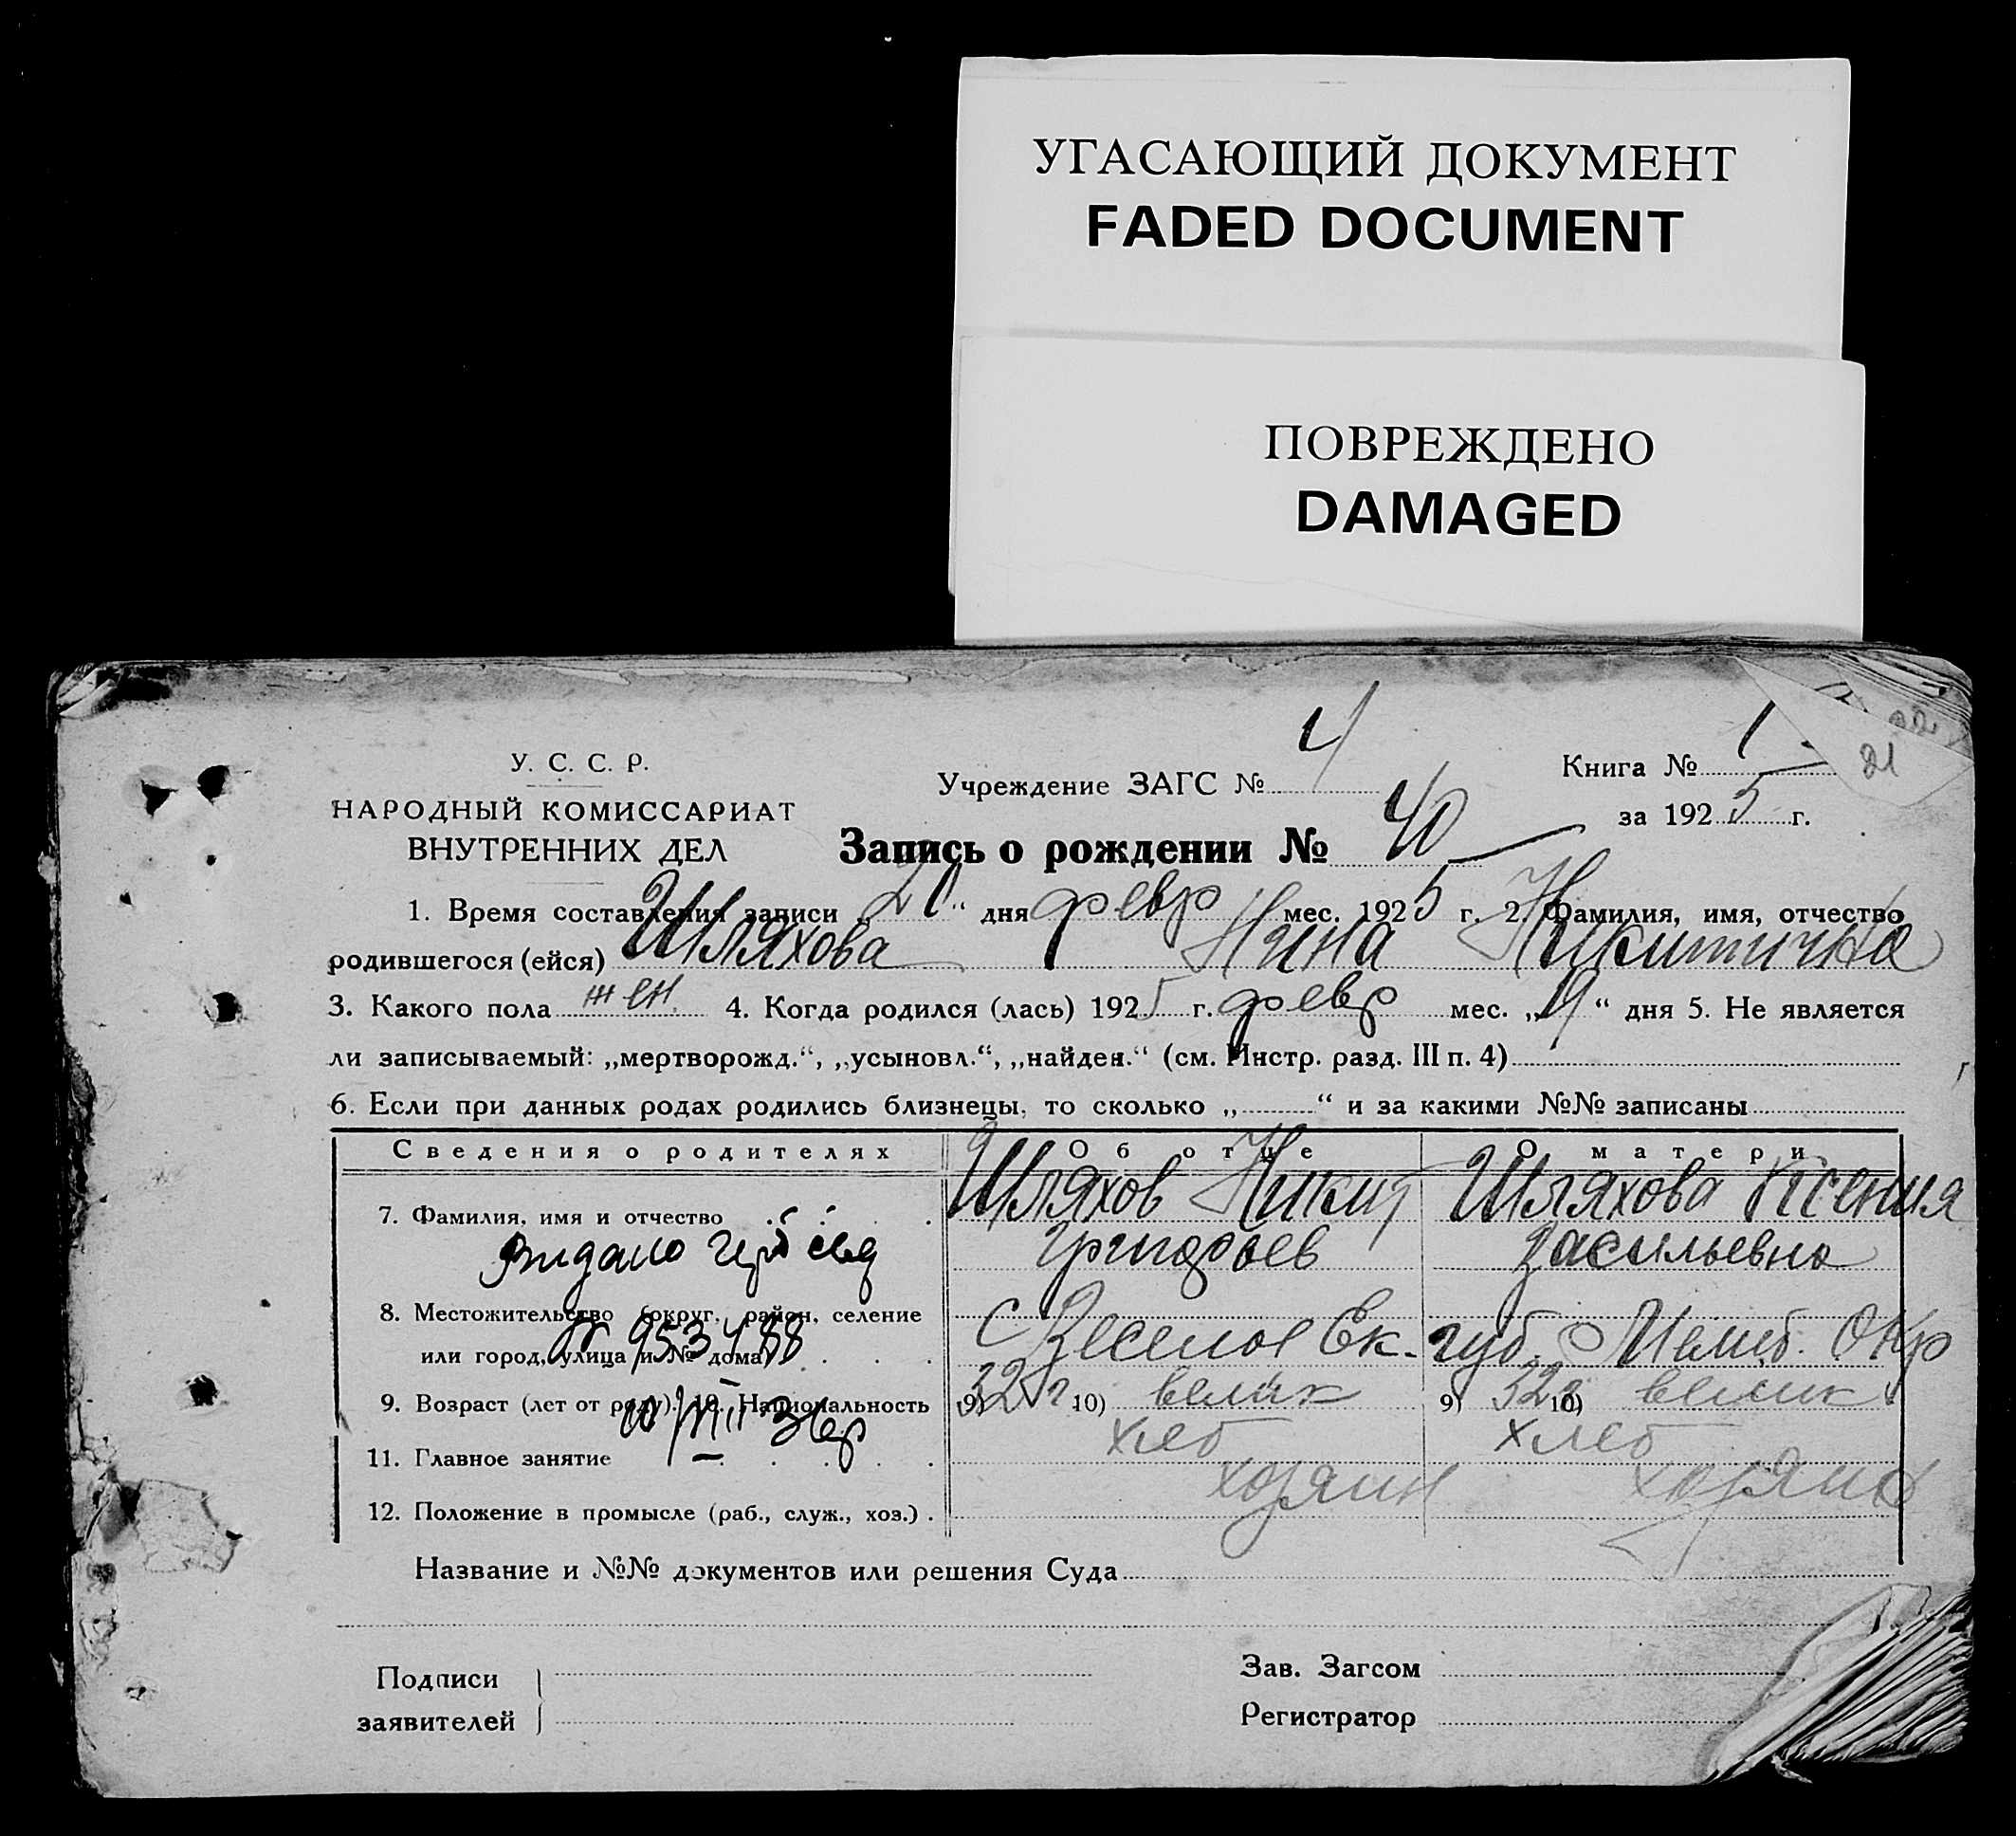 УГАСАЮЩИЙ ДОКУМЕНТ
FADED DOCUMENT
ПОВРЕЖДЕНО
DAMAGED
21
У. С. С. Р.
НАРОДНЫЙ КОМИССАРИАТ
ВНУТРЕННИХ ДЕЛ
Учреждение ЗАГС № 4
Книга № 1
за 1925 г.
Запись о рождении № 40
1. Время составления записи „20“ дня февр мес. 1925 г. 2. Фамилия, имя, отчество
родившегося (ейся) Шляхова Нина Никитична
3. Какого пола жен. 4. Когда родился (лась) 1925 г. февр мес. „19“ дня 5. Не является
ли записываемый: „мертворожд.“, „усыновл.“, „найден.“ (см. Инстр. разд. III п. 4)
6. Если при данных родах родились близнецы, то сколько „ “ и за какими №№ записаны
Сведения о родителях Об отце О матери
7. Фамилия, имя и отчество Шляхов Никит Шляхова Ксения
Видано Григорьев Васильевна
8. Местожительство (округ, район, селение
или город, улица и № дома) с Веселое Ек. губ. Мелит. Окр
9. Возраст (лет от роду). 10. Национальность 9) 32 г. 10) велик 9) 32 г 10) велик
11. Главное занятие хлеб хлеб
12. Положение в промысле (раб., служ., хоз.) . хозяин
Название и №№ документов или решения Суда
Подписи
заявителей
Зав. Загсом
Регистратор